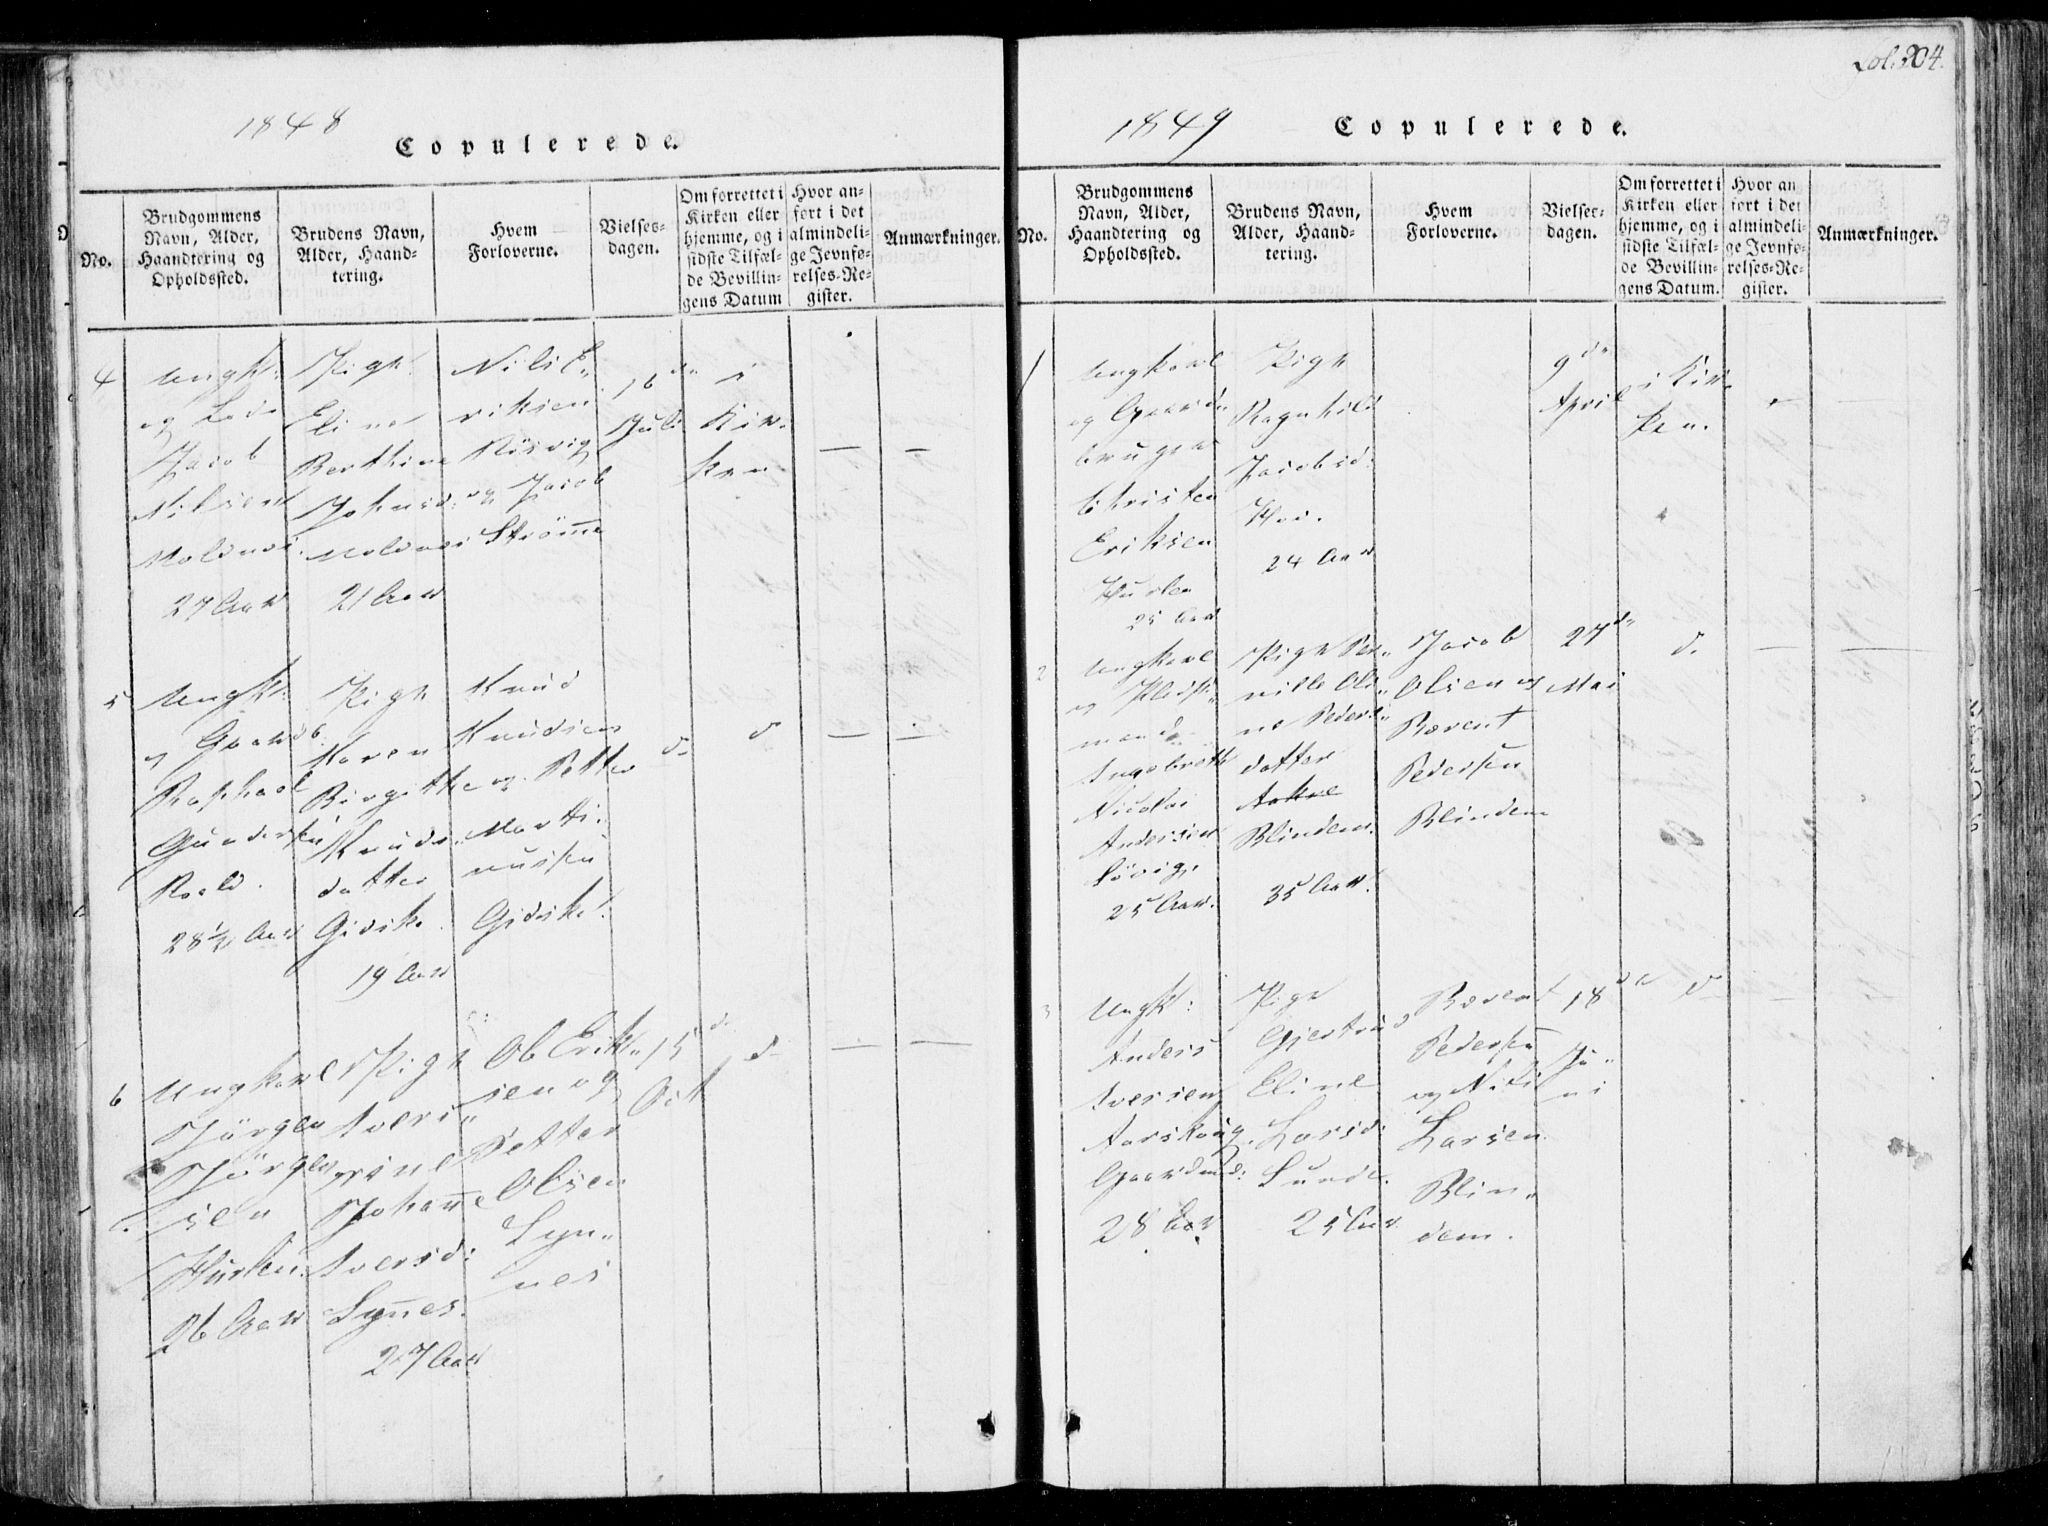 1848
Copulerede.
No.
Brudgommens
Navn, Alder,
Haandtering og
Opholdssted.
Brudens Navn,
Alder, Haand-
tering.
Hvem
Forloverne.
Vielses-
dagen.
Om forrettet i
Kirken eller
hjemme, og i
sidste Tilfæl-
de Bevillin-
gens Datum
Hvor an-
ført i det
almindeli-
ge Jevnfø-
relses-Re-
gister.
Anmærkninger.
4
Ungk:
Jacob
Nilsen
27 Aar
Pige
Eline
Berthine
Johnsd:
21 Aar
Nils E-
riksen
Rösvig
og Jacob
Strømme
16de
Juli
i
Kir-
ken
5
Ungk:
og Gaardb.
Raphael
Gundersen
Roald.
28½ Aar
Pige
Karen
Birgitte
Knuds-
datter
Gidske.
19 Aar
Knud
Knudsen
og Petter
Marti-
nussen
Gidske.
d.
d
6
Ungkarl
Jörgen
Jörgen-
sen
Hurlen.
26 Aar
Pige
Ivers-
Johanne
Iversd:
Synnes.
27 Aar
Ole Erik-
sen og
Petter
Olsen
Syn-
nes
15de
Oct
d.
Fol. 304.
1849
Copulerede.
No.
Brudgommens
Navn, Alder,
Haandtering og
Opholdssted.
Brudens Navn,
Alder, Haand-
tering.
Hvem
Forloverne.
Vielses-
dagen.
Om forrettet i
Kirken eller
hjemme, og i
sidste Tilfæl-
de Bevillin-
gens Datum.
Hvor an
ført i det
almindeli-
ge Jevnfø-
relses-Re-
gister.
Anmærkninger.
1
Ungkarl
og Gaard-
bruger
Christen
Eriksen
Hurlen
25 Aar
Pige
Ragnhild
Jacobsd:
24 Aar
9de
April
i Kir-
ken.
2
Ungkarl
og
mand
Ingebreth
Nicolai
Andersen
Lövig,
25 Aar.
Pige Per-
nille Oli-
ne Peders-
datter
Blindem.
35 Aar.
Jacob
Olsen og
Berent
Pedersen
Blindem
27de
Mai
d.
3
Ungk:
Anders
Iversen
Aarskoug
Gaardmd:
28 Aar
Pige
Gjertrud
Eline
Larsd:
Lunde.
25 Aar
Berent
Pedersen
og Nils
Larsen
Blin-
dem.
18de
Ju-
ni
d